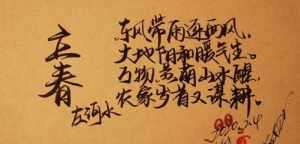 立春
左河水
东风带雨逐西风.
大地阳和暖气生.
万物苏萌山水醒.
农家岁首又谋耕.